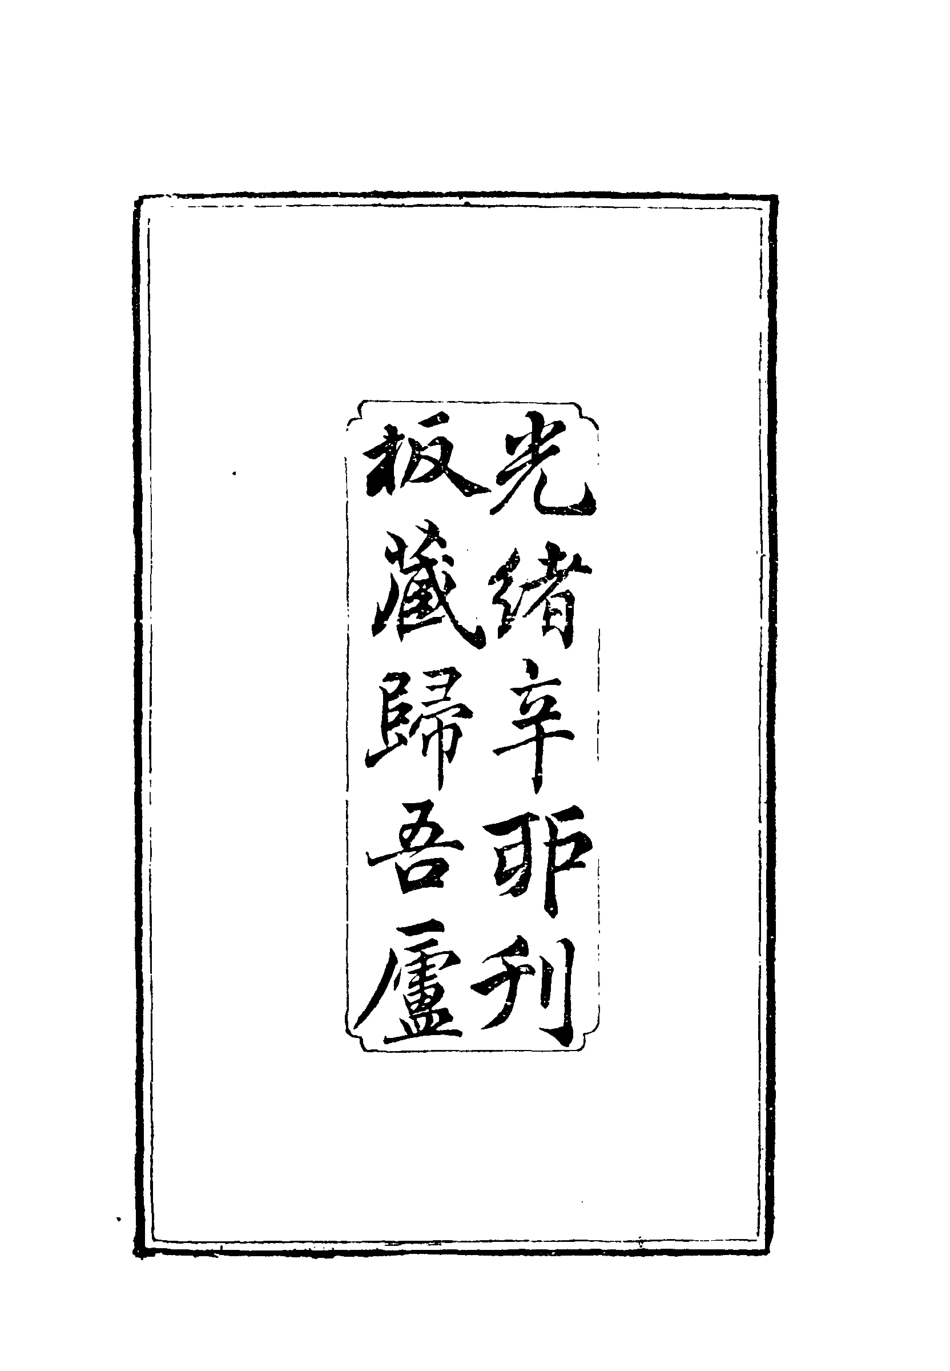 光緒辛卯刊
板藏歸吾廬